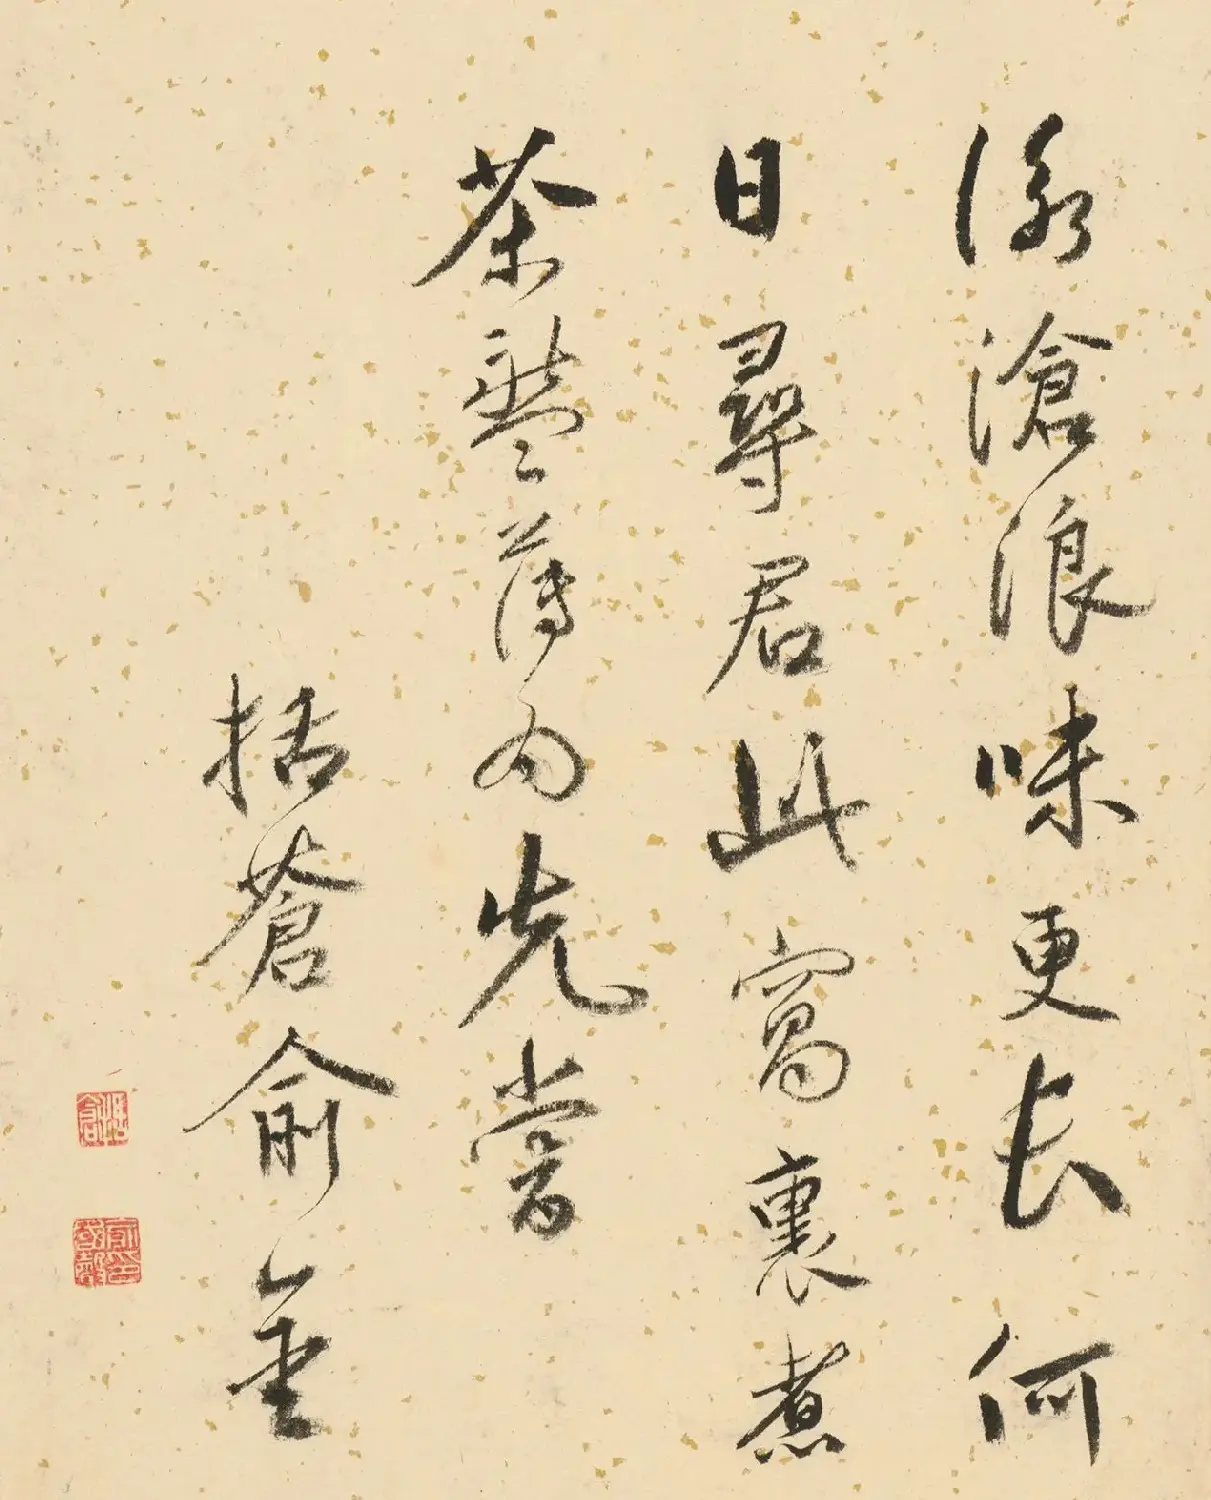 詠滄浪味更長何
日尋君此窩裏煮
茶薄為先嘗
括蒼俞金